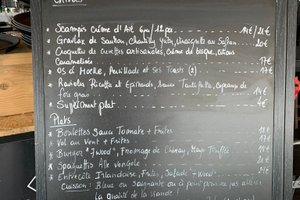 * Scampis Crème d'Ail 6pc / 12pcs 14€ / 21€
* Gravlax de Saumon, Chantilly Vinaigrette au Safran 20€
* Croquettes de crevettes artisanales, Crème de bisque, citrons
Caramélisés 17€
* Os à Moelle, Persillade et Ses Toasts (2) 17€
* Raviolis Ricotta et Épinards, Sauce Copeaux de
foie gras
* Supplément plat 4€
Plats
* Boulettes Sauce Tomate + Frites
* Vol au Vent + Frites
* Burger "7wood", Fromage de Chimay, Mayo Truffe
* Spaghettis Alle Vongole
* Entrecôte Irlandaise, Frites, Salade "7wood"
Cuisson: Bleu ou saignante ou à point pour ne pas altérer
la qualité de la viande!